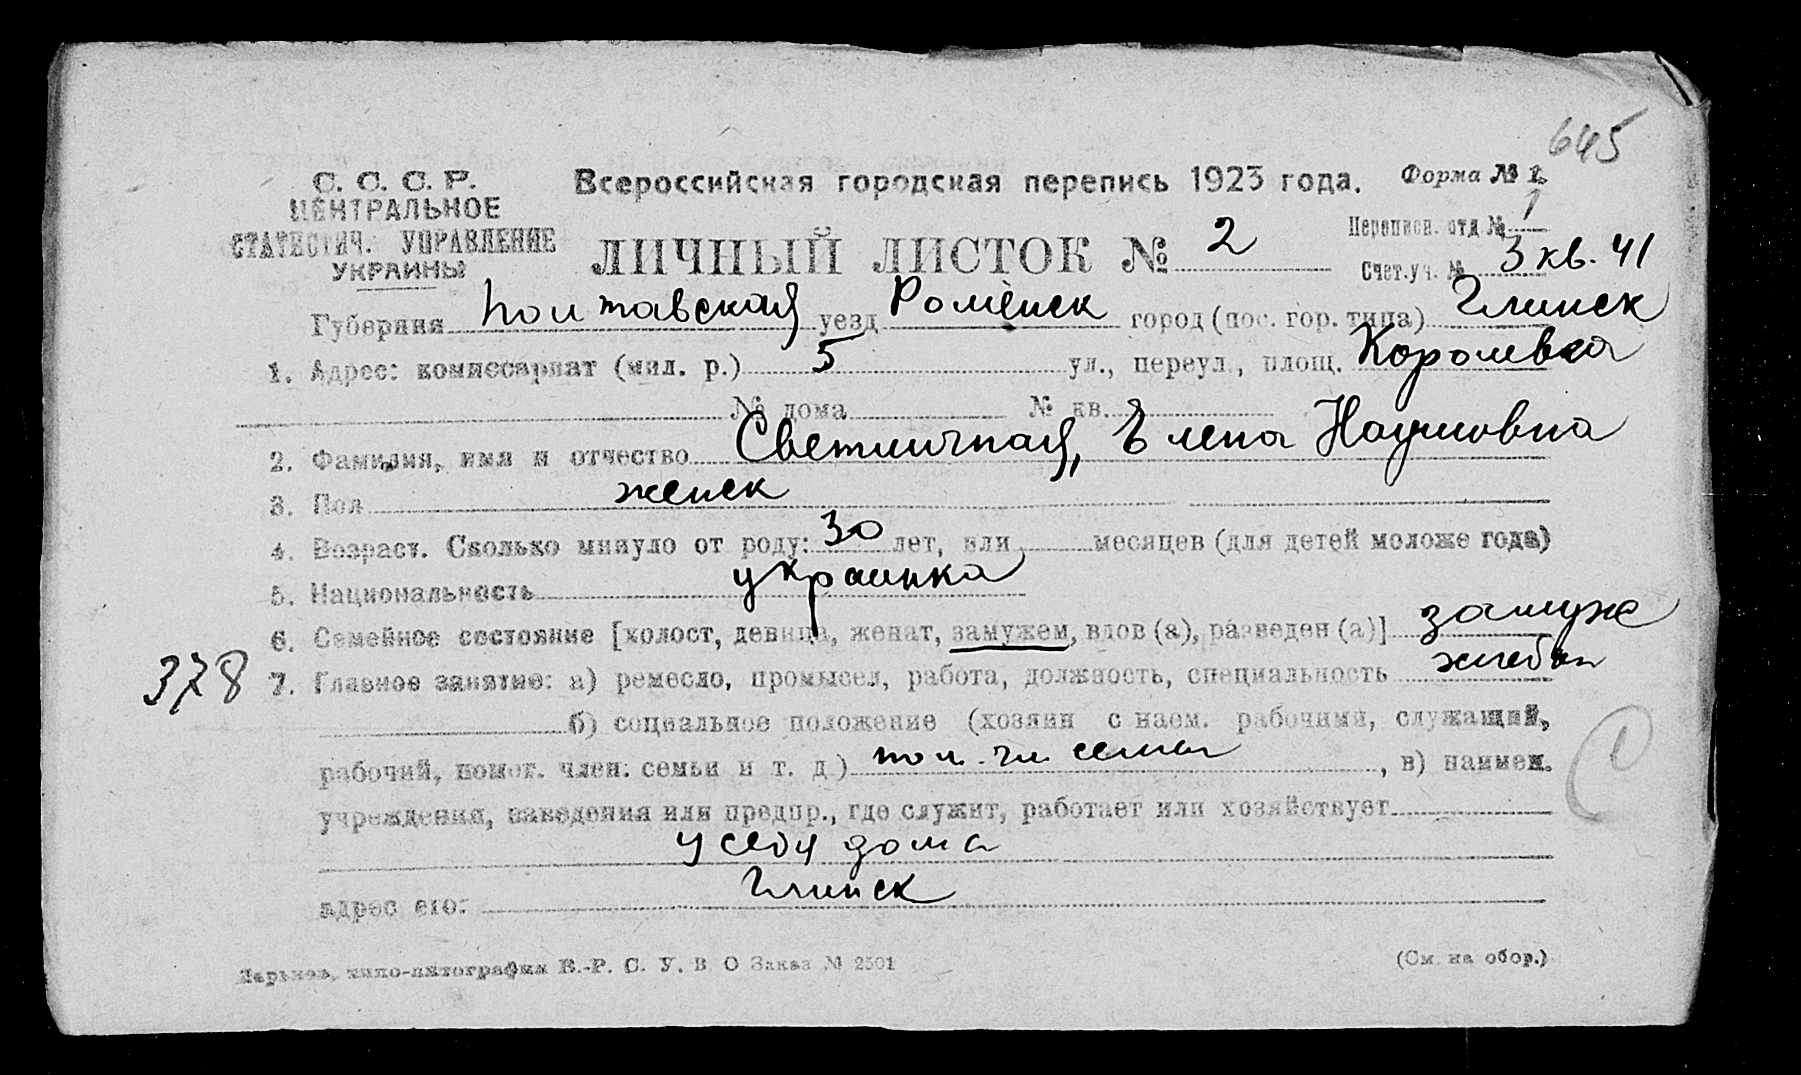 645
С. С. С. Р.
ЦЕНТРАЛЬНОЕ
СТАТИСТИЧ. УПРАВЛЕНИЕ
УКРАИНЫ
Всероссийская городская перепись 1923 года. Форма № 1.
ЛИЧНЫЙ ЛИСТОК № 2
Переписн. отд № 1
Счет. уч. № 3 кв. 41
Губерния Полтавская уезд Роменск город (пос. гор. типа) Глинск
1. Адрес: комиссариат (мил. р.) 5 ул., переул., площ. Королевка
№ дома № кв.
2. Фамилия, имя и отчество Светличная, Елена Наумовна
3. Пол женск
4. Возраст. Сколько минуло от роду: 30 лет, или месяцев (для детей моложе года)
5. Национальность украинка
6. Семейное состояние [холост, девица, женат, замужем, вдов (а), разведен (а)] замуже
378 7. Главное занятие: а) ремесло, промысел, работа, должность, специальность
б) социальное положение (хозяин с наем. рабочими, служащий,
рабочий, помог. член. семьи и т. д) пом. чл. семьи, в) наимен.
учреждения, заведения или предпр., где служит, работает или хозяйствует
у себя дома
адрес его: Глинск
Харьков, типо-литография В.-Р. С. У. В. О Заказ № 2501
(См. на обор.)